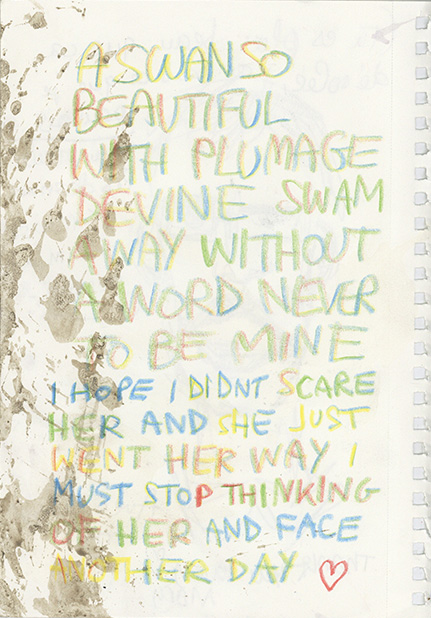 A SWAN SO
BEAUTIFUL
WITH PLUMAGE
DEVINE SWAM
AWAY WITHOUT
A WORD NEVER
TO BE MINE
I HOPE I DIDNT SCARE
HER AND SHE JUST
WENT HER WAY I
MUST STOP THINKING
OF HER AND FACE
ANOTHER DAY